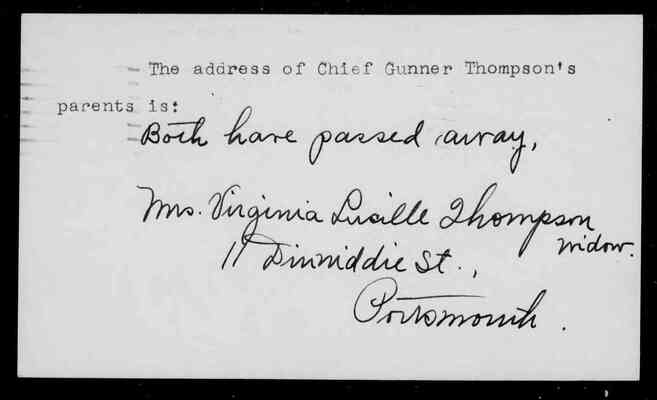 The address of Chief Gunner Thompson's
parents is:
Both have passed away,
Mrs. Virginia Lucille Thompson
widow.
11 Dinwiddie St.,
Portsmouth.